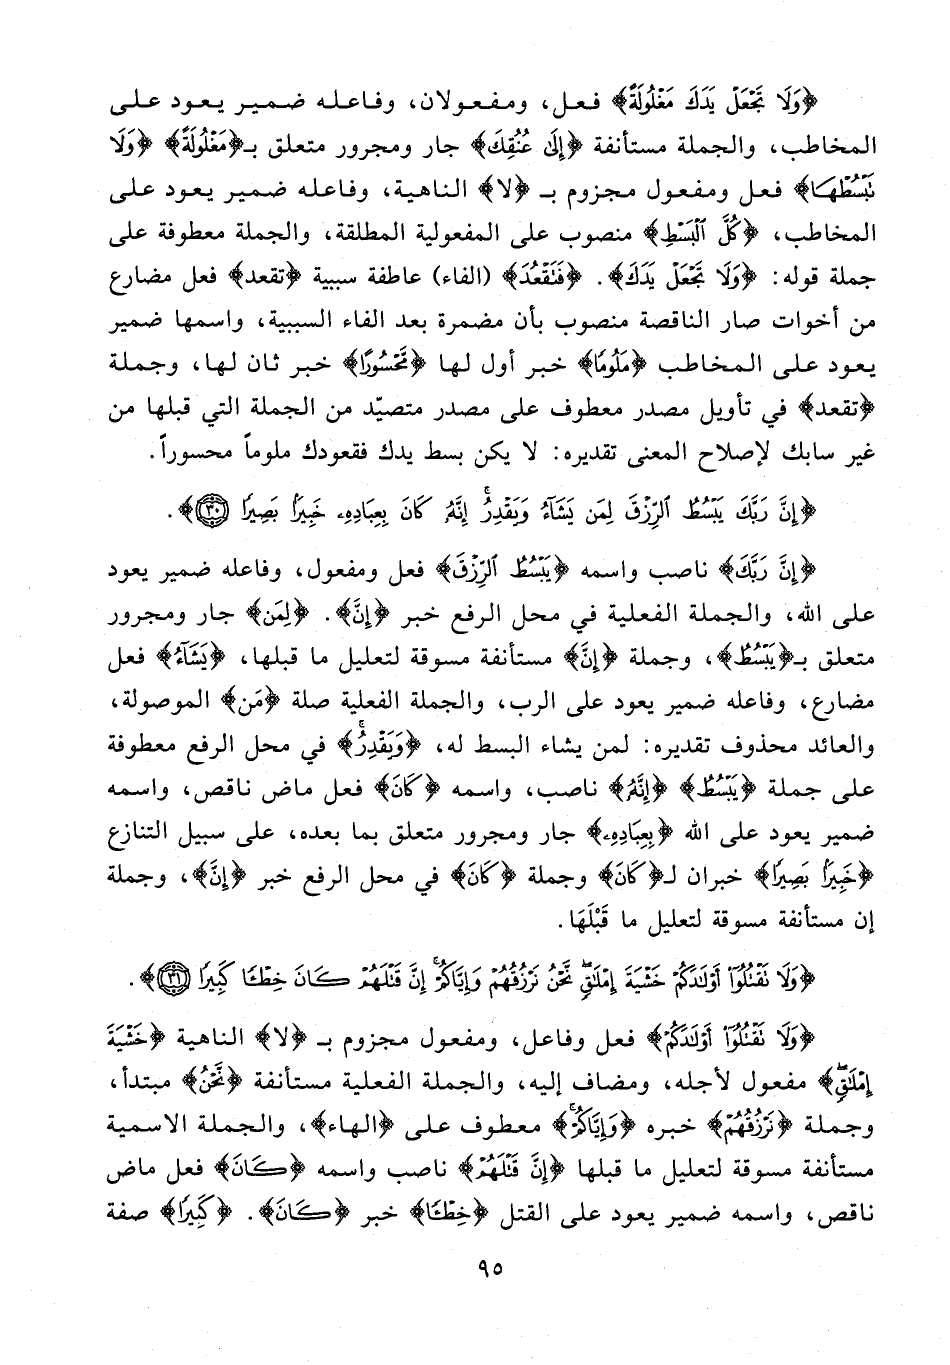 ﴿وَلَا تَجْعَلْ يَدَكَ مَغْلُولَةً﴾ فعل، ومفعولان، وفاعله ضمير يعود على
المخاطب، والجملة مستأنفة ﴿إِلَىٰ عُنُقِكَ﴾ جار ومجرور متعلق بـ﴿مَغْلُولَةً﴾ ﴿وَلَا
تَبْسُطْهَا﴾ فعل ومفعول مجزوم بـ ﴿لا﴾ الناهية، وفاعله ضمير يعود على
المخاطب، ﴿كُلَّ ٱلْبَسْطِ﴾ منصوب على المفعولية المطلقة، والجملة معطوفة على
جملة قوله: ﴿وَلَا تَجْعَلْ يَدَكَ﴾. ﴿فَتَقْعُدَ﴾ (الفاء) عاطفة سببية ﴿تقعد﴾ فعل مضارع
من أخوات صار الناقصة منصوب بأن مضمرة بعد الفاء السببية، واسمها ضمير
يعود على المخاطب ﴿مَلُومًا﴾ خبر أول لها ﴿مَّحْسُورًا﴾ خبر ثان لها، وجملة
﴿تقعد﴾ في تأويل مصدر معطوف على مصدر متصيّد من الجملة التي قبلها من
غير سابك لإصلاح المعنى تقديره: لا يكن بسط يدك فقعودك ملوماً محسوراً.
﴿إِنَّ رَبَّكَ يَبْسُطُ ٱلرِّزْقَ لِمَن يَشَآءُ وَيَقْدِرُۚ إِنَّهُۥ كَانَ بِعِبَادِهِۦ خَبِيرًۢا بَصِيرًا ٣٠﴾.
﴿إِنَّ رَبَّكَ﴾ ناصب واسمه ﴿يَبْسُطُ ٱلرِّزْقَ﴾ فعل ومفعول، وفاعله ضمير يعود
على الله، والجملة الفعلية في محل الرفع خبر ﴿إِنَّ﴾. ﴿لِمَن﴾ جار ومجرور
متعلق بـ﴿يَبْسُطُ﴾، وجملة ﴿إِنَّ﴾ مستأنفة مسوقة لتعليل ما قبلها، ﴿يَشَآءُ﴾ فعل
مضارع، وفاعله ضمير يعود على الرب، والجملة الفعلية صلة ﴿مَن﴾ الموصولة،
والعائد محذوف تقديره: لمن يشاء البسط له، ﴿وَيَقْدِرُۚ﴾ في محل الرفع معطوفة
على جملة ﴿يَبْسُطُ﴾ ﴿إِنَّهُۥ﴾ ناصب، واسمه ﴿كَانَ﴾ فعل ماض ناقص، واسمه
ضمير يعود على الله ﴿بِعِبَادِهِۦ﴾ جار ومجرور متعلق بما بعده، على سبيل التنازع
﴿خَبِيرًۢا بَصِيرًا﴾ خبران لـ﴿كَانَ﴾ وجملة ﴿كَانَ﴾ في محل الرفع خبر ﴿إِنَّ﴾، وجملة
إن مستأنفة مسوقة لتعليل ما قَبْلَهَا.
﴿وَلَا تَقْتُلُوٓا۟ أَوْلَٰدَكُمْ خَشْيَةَ إِمْلَٰقٍۖ نَّحْنُ نَرْزُقُهُمْ وَإِيَّاكُمْۚ إِنَّ قَتْلَهُمْ كَانَ خِطْـًٔا كَبِيرًا ٣١﴾.
﴿وَلَا تَقْتُلُوٓا۟ أَوْلَٰدَكُمْ﴾ فعل وفاعل، ومفعول مجزوم بـ ﴿لا﴾ الناهية ﴿خَشْيَةَ
إِمْلَٰقٍۖ﴾ مفعول لأجله، ومضاف إليه، والجملة الفعلية مستأنفة ﴿نَّحْنُ﴾ مبتدأ،
وجملة ﴿نَرْزُقُهُمْ﴾ خبره ﴿وَإِيَّاكُمْۚ﴾ معطوف على ﴿الهاء﴾، والجملة الاسمية
مستأنفة مسوقة لتعليل ما قبلها ﴿إِنَّ قَتْلَهُمْ﴾ ناصب واسمه ﴿كَانَ﴾ فعل ماض
ناقص، واسمه ضمير يعود على القتل ﴿خِطْـًٔا﴾ خبر ﴿كَانَ﴾. ﴿كَبِيرًا﴾ صفة
٩٥